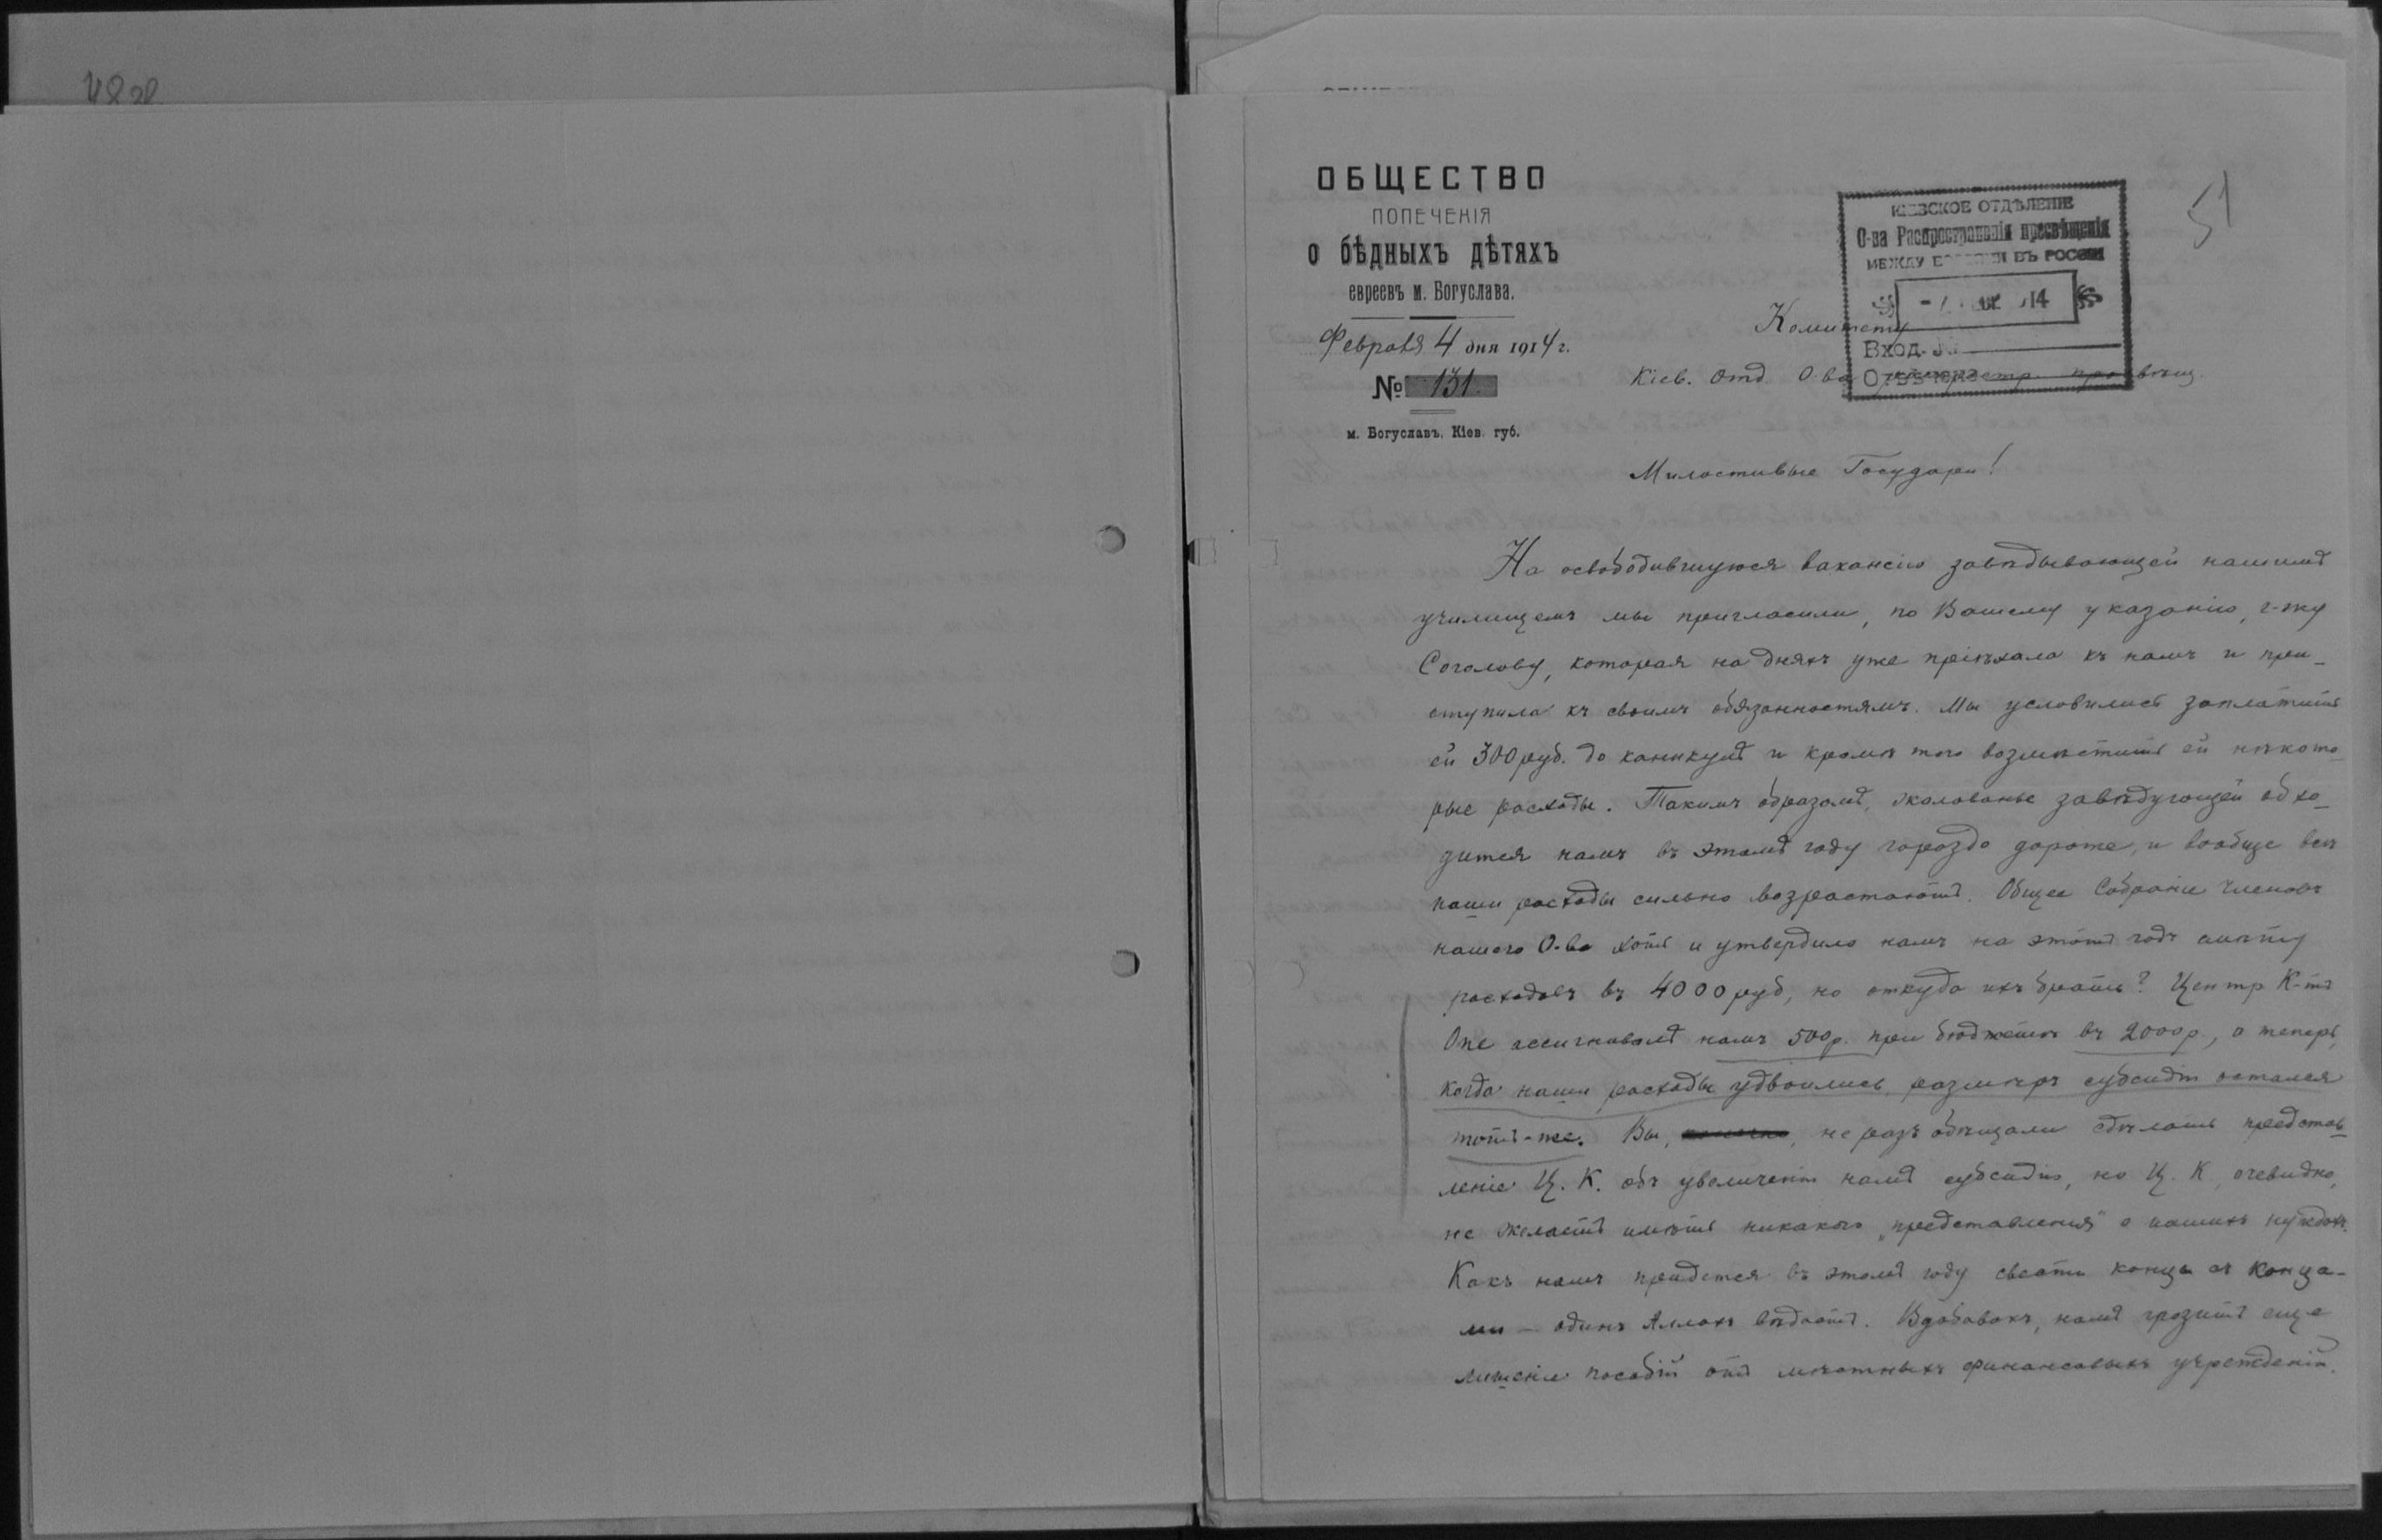 ОБЩЕСТВО
ПОПЕЧЕНІЯ
о бѣдныхъ дѣтяхъ
евреевъ м. Богуслава.
Февраля 4 дня 1914 г.
№ 131.
м. Богуславъ, Кіев. губ.
КІЕВСКОЕ ОТДѢЛЕНІЕ
О-ва Распространенія просвѣщенія
МЕЖДУ ЕВРЕЯМИ ВЪ РОССІИ
14
Вход. №
Отвѣчено
51
Комитету
Кіев. Отд. О-ва распростр. просвѣщ.
Милостивые Государи!
На освободившуюся вакансію завѣдывающей нашимъ
училищемъ мы пригласили, по Вашему указанію, г-жу
Соголову, которая на дняхъ уже пріѣхала къ намъ и при-
ступила къ своимъ обязанностямъ. Мы условились заплатить
ей 300 руб. до каникулъ и кромѣ того возмѣстить ей нѣкото-
рые расходы. Такимъ образомъ, жалованье завѣдующей обхо-
дится намъ въ этомъ году гораздо дороже, и вообще всѣ
наши расходы сильно возрастаютъ. Общее Собраніе членовъ
нашего О-ва хотя и утвердило намъ на этотъ годъ смѣту
расходовъ въ 4000 руб, но откуда ихъ брать? Центр К-тъ
Опе ассигновалъ намъ 500 р. при бюджетѣ въ 2000 р., а теперь,
когда наши расходы удвоились, размѣръ субсидіи остался
тотъ-же. Вы, не разъ обѣщали сдѣлать представ-
леніе Ц. К. объ увеличеніи намъ субсидіи, но Ц. К., очевидно,
не желаетъ имѣть никакого „представленія" о нашихъ нуждахъ.
Какъ намъ придется въ этомъ году свести концы съ конца-
ми — одинъ Аллахъ вѣдаетъ. Вдобавокъ, намъ грозитъ еще
лишеніе пособій отъ мѣстныхъ финансовыхъ учрежденій.